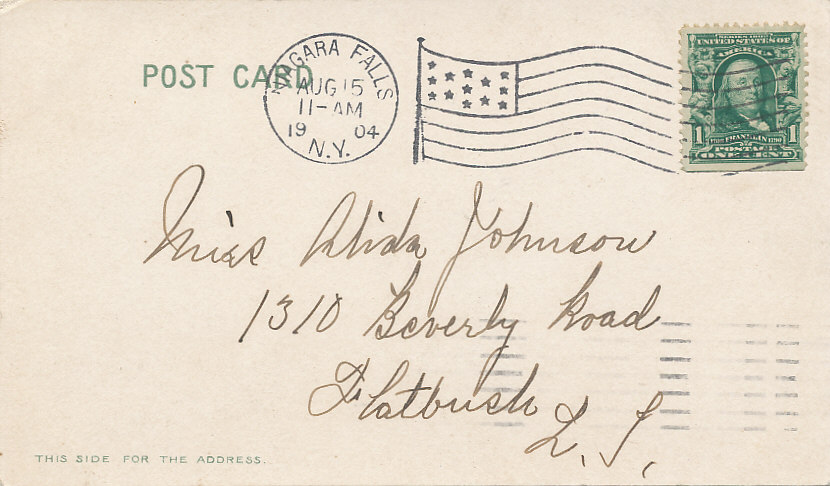 POST CARD
NIAGARA FALLS
AUG 15
11-AM
19 04
N.Y.
UNITED STATES OF
AMERICA
1 FRANKLIN 1
POSTAGE
ONE CENT
Miss Alida Johnson
1310 Beverly Road
Flatbush
L. I.
THIS SIDE FOR THE ADDRESS.